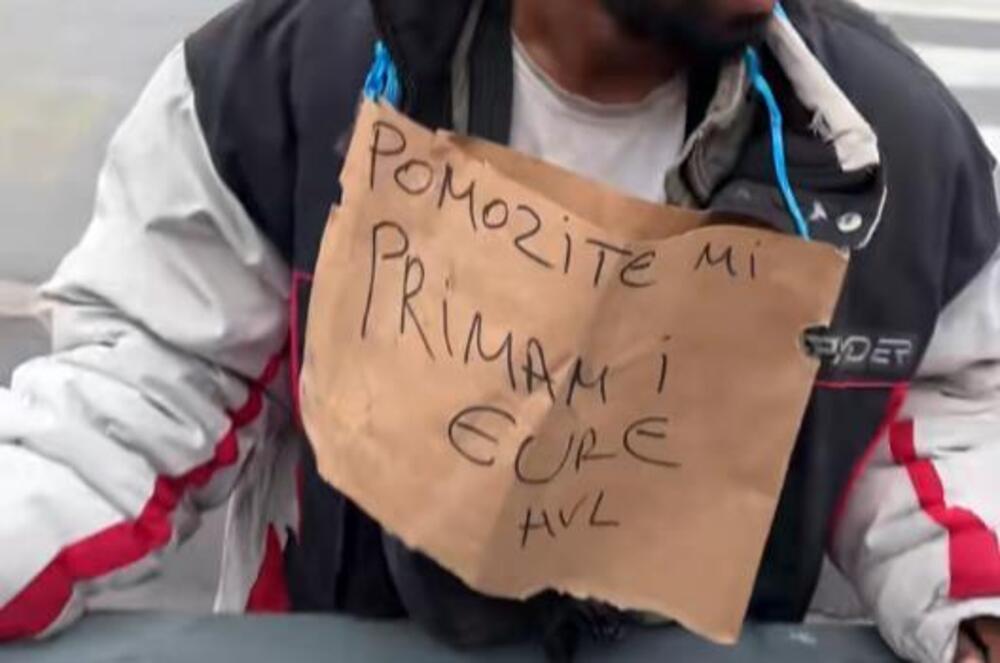 POMOZiTE Mi
PRiMAM i
EURE
HVL
SPYDER